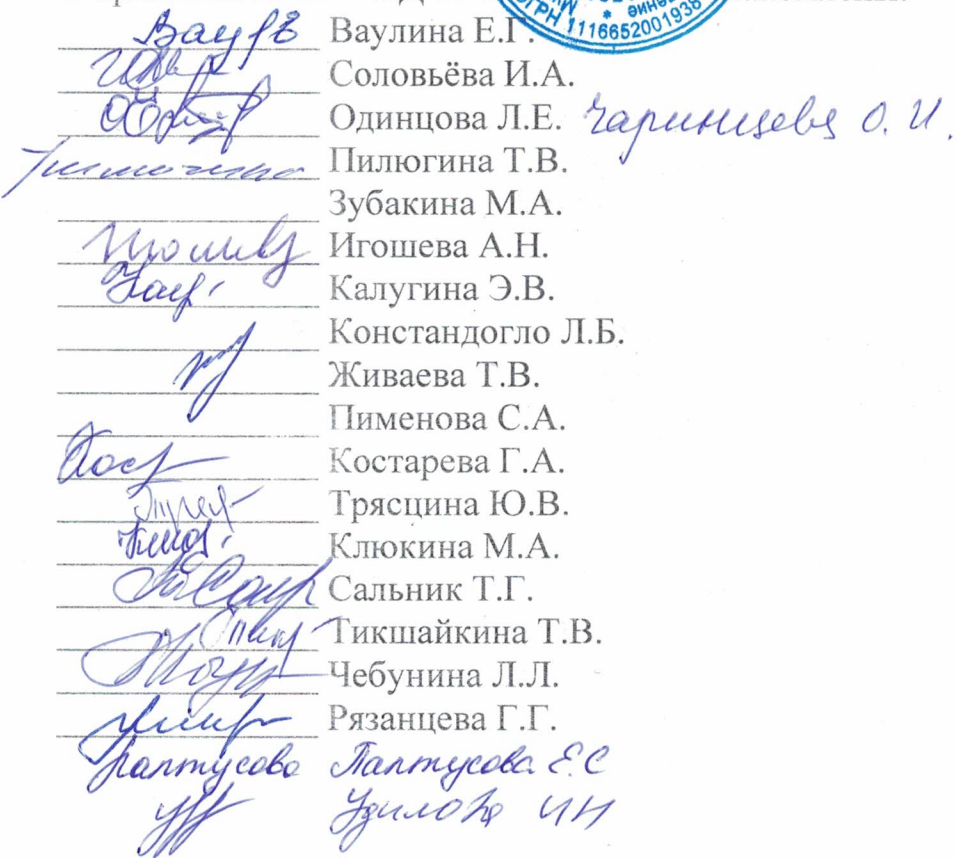 ОГРН 1116652001938
Ваулина Е.Г.
Соловьёва И.А.
Одинцова Л.Е. Чаринцева О. И.
Пилюгина Т.В.
Зубакина М.А.
Игошева А.Н.
Калугина Э.В.
Констандогло Л.Б.
Живаева Т.В.
Пименова С.А.
Костарева Г.А.
Трясцина Ю.В.
Клюкина М.А.
Сальник Т.Г.
Тикшайкина Т.В.
Чебунина Л.Л.
Рязанцева Г.Г.
Палтусова Палтусова Е.С
Удилова ИН